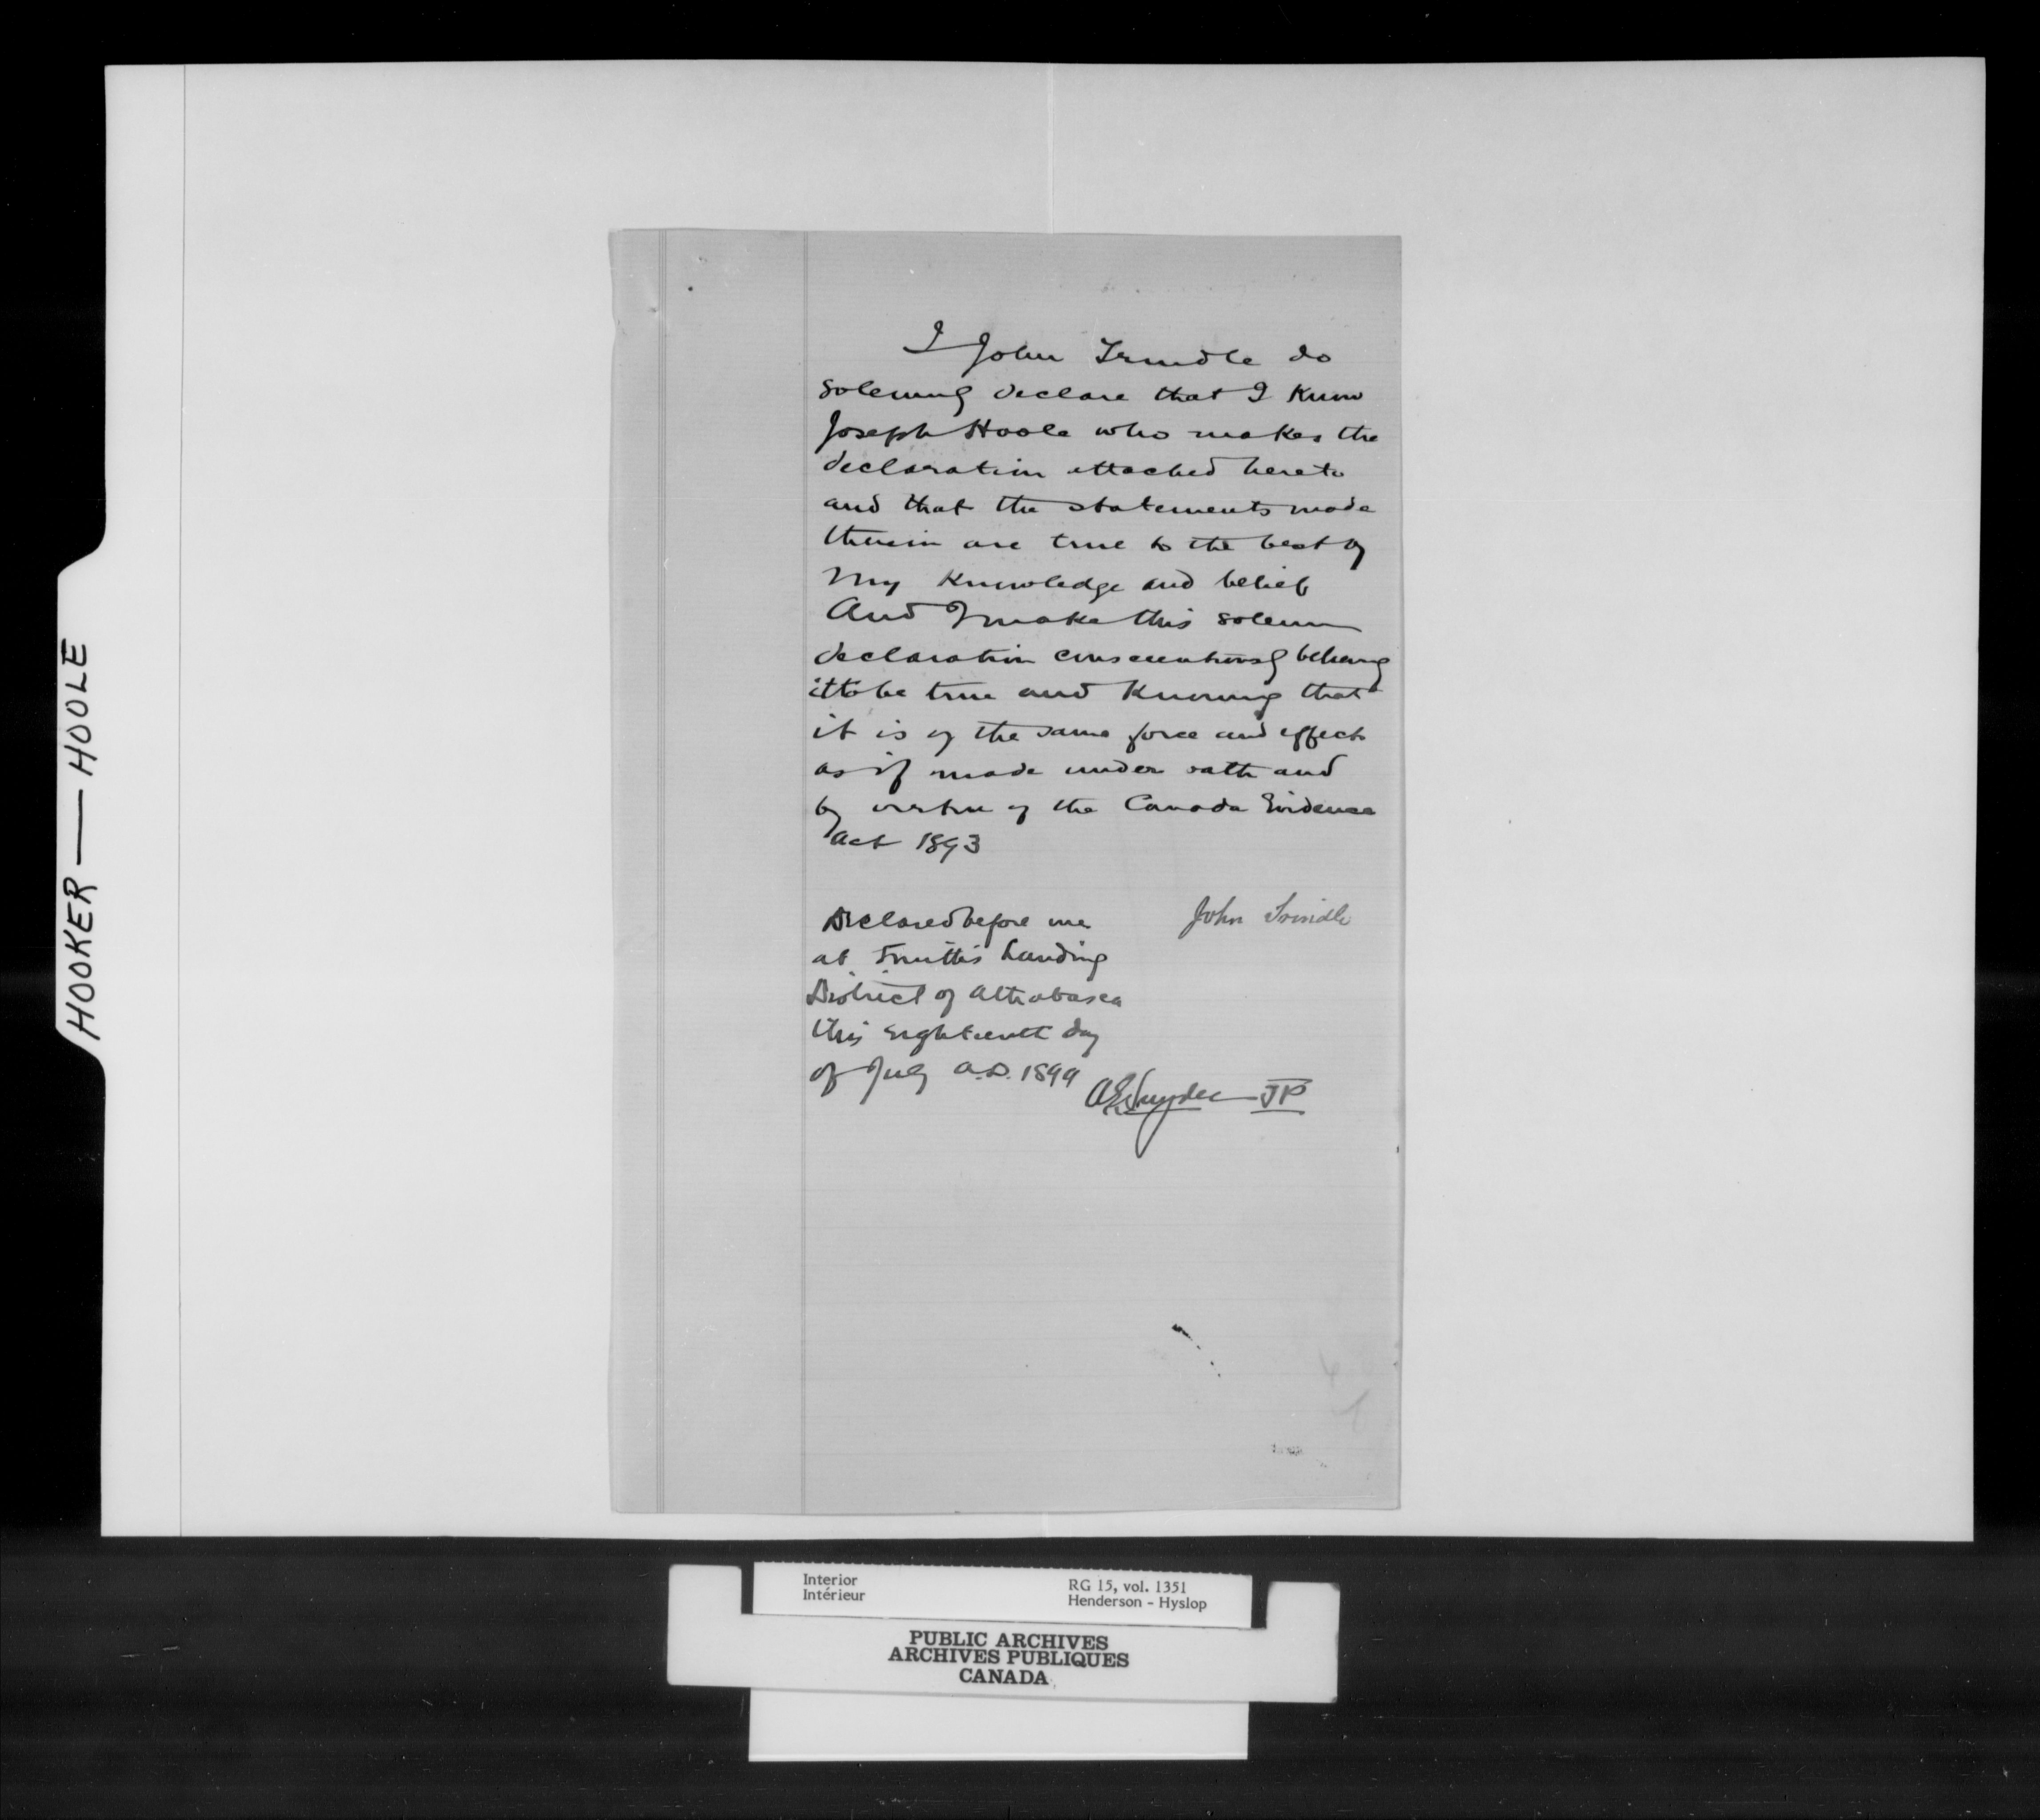 HOOKER — HOOLE
I John Trindle do
solemnly declare that I know
Joseph Hoole who makes the
declaration attached hereto
and that the statements made
therein are true to the best of
my knowledge and belief
And I make this solemn
declaration conscientiously believing
it to be true and knowing that
it is of the same force and effect
as if made under oath and
by virtue of the Canada Evidence
Act 1893
Declared before me
John Trindle
at Smith's Landing
District of Athabasca
this eighteenth day
of July A.D. 1899
AE Snyder JP
Interior
Intérieur
RG 15, vol. 1351
Henderson - Hyslop
PUBLIC ARCHIVES
ARCHIVES PUBLIQUES
CANADA